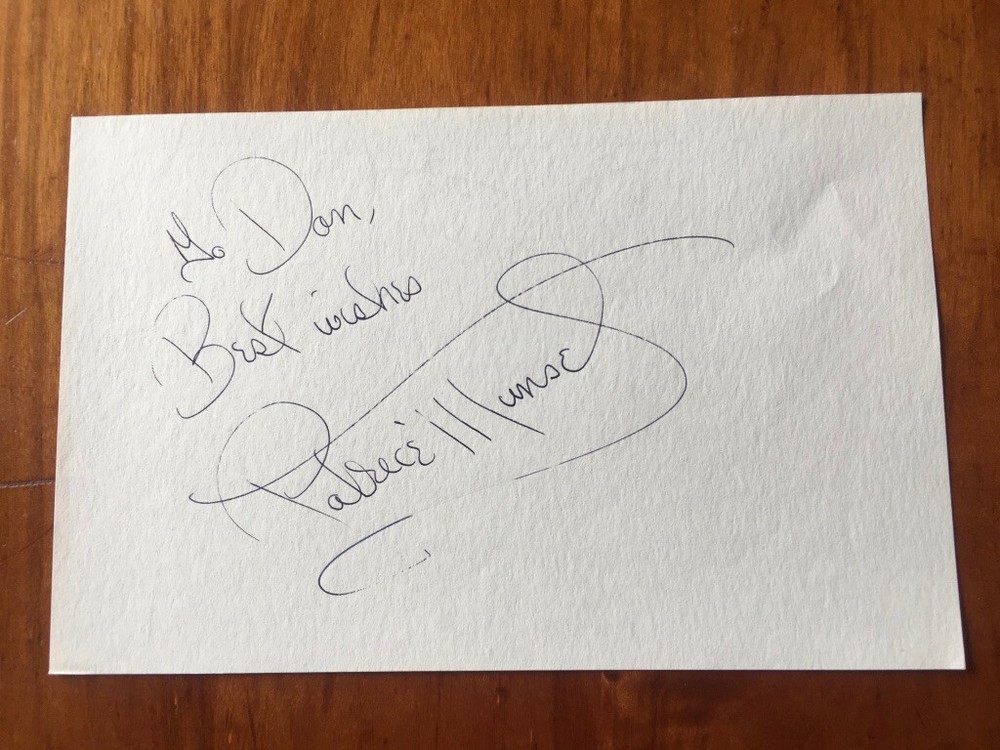 To Don,
Best wishes
Patrice Munsel